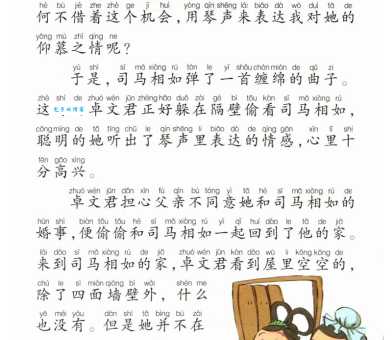 hé bù jiè zhe zhè ge jī huì yòng qín shēng lái biǎo dá wǒ duì tā de
何不借着这个机会，用琴声来表达我对她的
yǎng mù zhī qíng ne
仰慕之情呢？
yú shì sī mǎ xiàng rú tán le yì shǒu chán mián de qǔ zi
于是，司马相如弹了一首缠绵的曲子。
zhè shí de zhuó wén jūn zhèng hǎo duǒ zài gé bì tōu kàn sī mǎ xiàng rú
这 卓文君正好躲在隔壁偷看司马相如，
cōng míng de tā tīng chū le qín shēng lǐ biǎo dá de qíng gǎn xīn lǐ shí
聪明的她听出了琴声里表达的情感，心里十
fēn gāo xìng
分高兴。
zhuó wén jūn dān xīn fù qīn bù tóng yì tā hé sī mǎ xiàng rú de
卓文君担心父亲不同意她和司马相如的
hūn shì biàn tōu tōu hé sī mǎ xiàng rú yì qǐ huí dào le tā de jiā
婚事，便偷偷和司马相如一起回到了他的家。
lái dào sī mǎ xiàng rú de jiā zhuó wén jūn kàn dào wū lǐ kōng kōng de
来到司马相如的家，卓文君看到屋里空空的，
chú le sì miàn qiáng bì wài shén me
除了四面墙壁外，什么
yě méi yǒu dàn shì tā bìng bù zài
也没有。但是她并不在